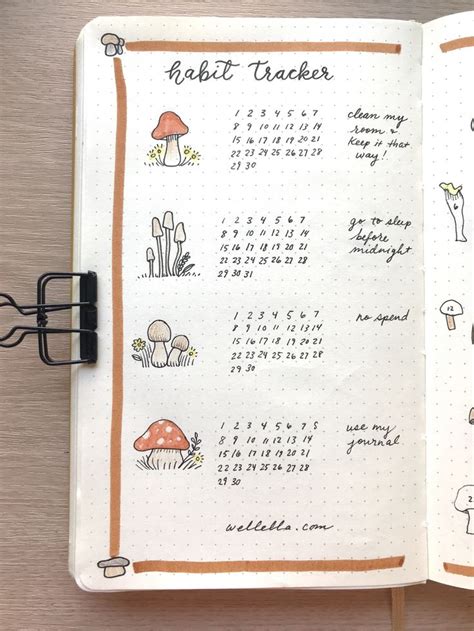 habit tracker
1 2 3 4 5 6 7
8 9 10 11 12 13 14
15 16 17 18 19 20 21
22 23 24 25 26 27 28
29 30
clean my
room &
keep it that
way!
1 2 3 4 5 6 7
8 9 10 11 12 13 14
15 16 17 18 19 20 21
22 23 24 25 26 27 28
29 30 31
go to sleep
before
midnight
1 2 3 4 5 6 7
8 9 10 11 12 13 14
15 16 17 18 19 20 21
22 23 24 25 26 27 28
29 30
no spend
1 2 3 4 5 6 7 8
8 9 10 11 12 13 14
15 16 17 18 19 20 21
22 23 24 25 26 27 28
29 30
use my
journal
wellella.com
6
12